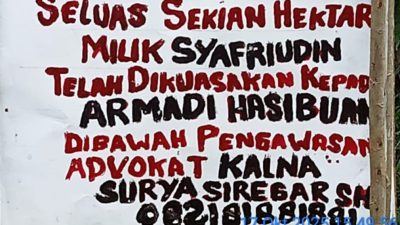 SELUAS SEKIAN HEKTAR
MILIK SYAFRIUDIN
TELAH DIKUASAKAN KEPAD
ARMADI HASIBUAN
DIBAWAH PENGAWASAN
ADVOKAT KALNA
SURYA SIREGAR SH